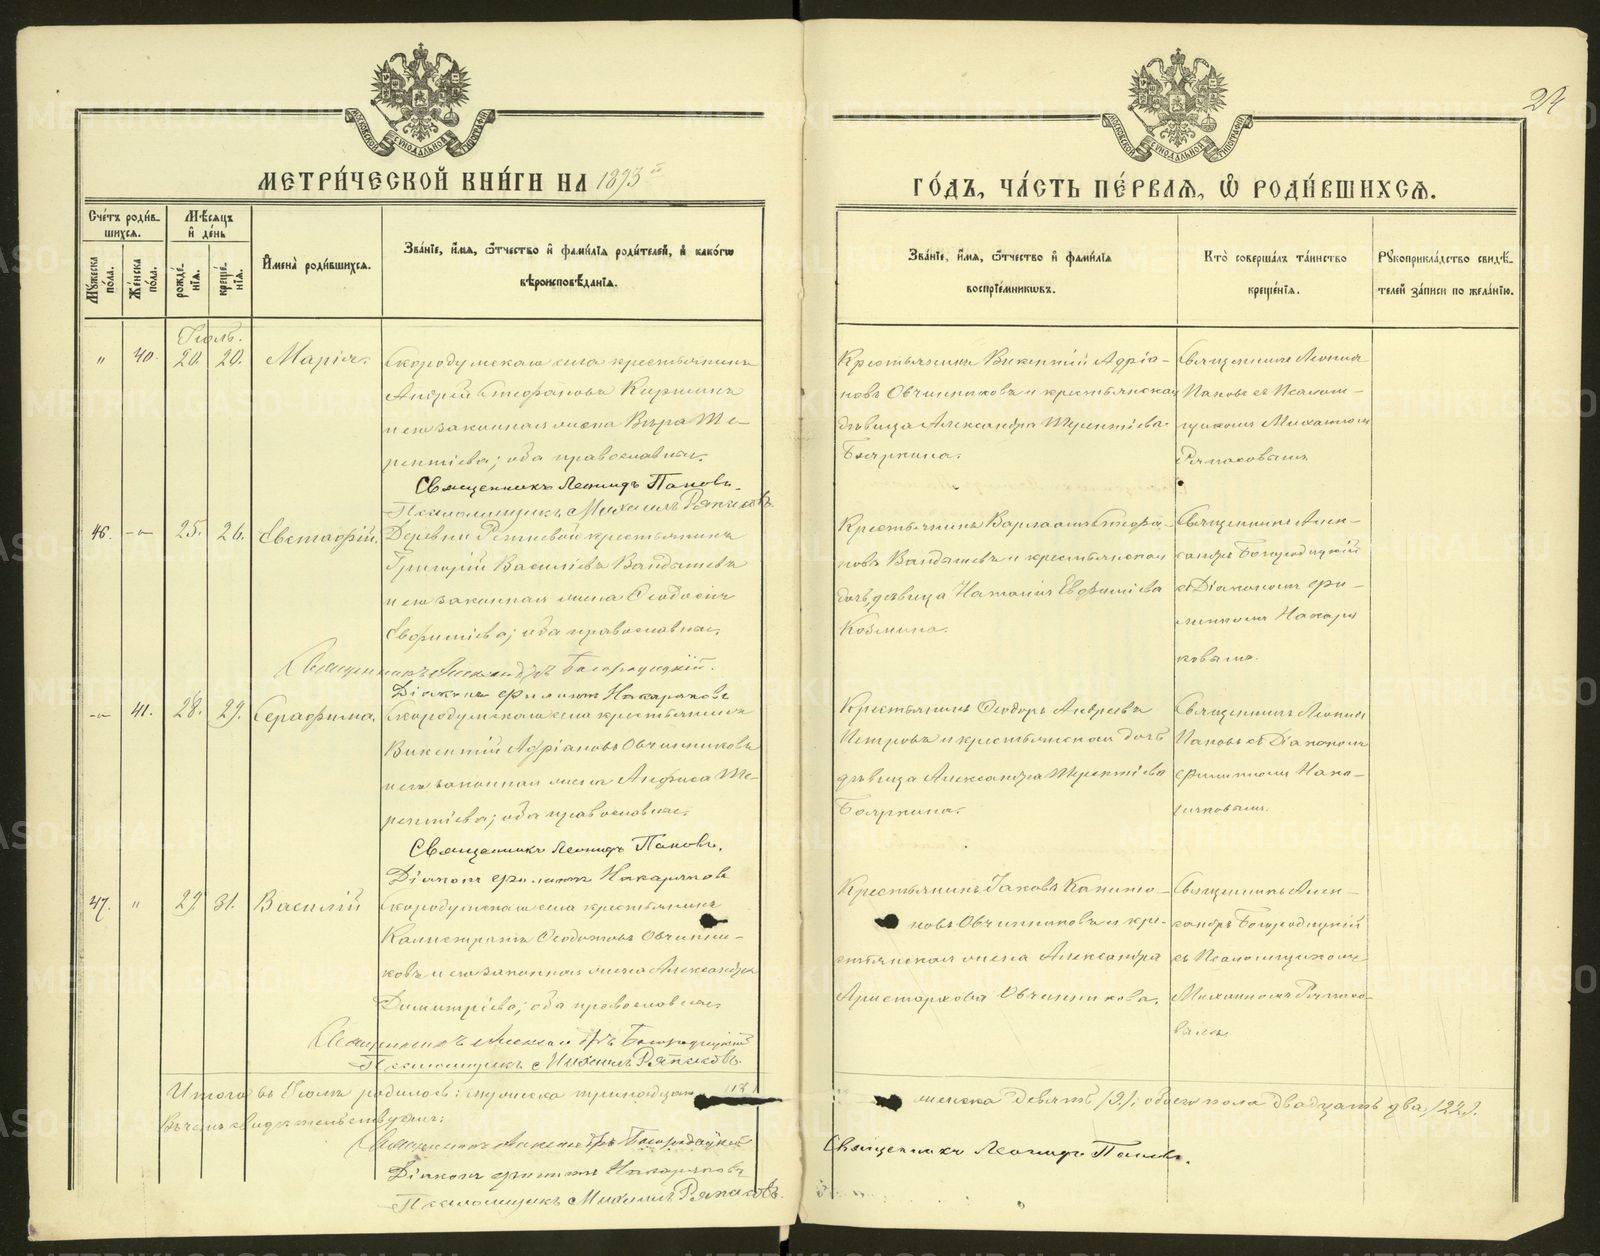 24
МОСКОВСКОЙ СѴНОДАЛЬНОЙ ТИПОГРАФІИ
МОСКОВСКОЙ СѴНОДАЛЬНОЙ ТИПОГРАФІИ
МЕТРИ́ЧЕСКОЙ КНИ́ГИ НА 1893й
ГО́ДЪ, ЧА́СТЬ ПЕ́РВАѦ, Ѽ РОДИ́ВШИХСѦ.
Сче́тъ роди́в-
шихся.
Му́жеска по́ла.
Же́нска по́ла.
Мѣ́сяцъ
и де́нь
рожде́нія.
креще́нія.
Имена̀ роди́вшихся.
Зва́ніе, и́мя, ѻтчество и фами́лія роди́телей, и како́гѡ
вѣроисповѣ́данія.
Зва́ніе, и́мя, ѻтчество и фами́лія
воспріе́мникѡвъ.
Кто̀ соверша́лъ та́инство
креще́нія.
Рукоприкла́дство свидѣ́-
телей за́писи по жела́нію.
Іюль.
" 40. 20. 20. Марія.
Скородумскаго села крестьянинъ
Андрей Стефановъ Киршинъ
и его законная жена Вѣра Те-
рентіева; оба православные.
Священникъ Леонидъ Поповъ.
Псаломщикъ Михаилъ Ряпасовъ.
Крестьянинъ Викентій Адріа-
новъ Овчинниковъ и крестьянская
дѣвица Александра Терентіева
Бояркина.
Священникъ Леонидъ
Поповъ съ Псалом-
щикомъ Михаиломъ
Ряпасовымъ
46. -„- 25. 26. Евстафій.
Деревни Речневой крестьянинъ
Григорій Василіевъ Вандышевъ
и его законная жена Ѳеодосія
Евфиміева; оба православные.
Священникъ Александръ Богородицкій.
Діаконъ Филиппъ Накаряковъ
Крестьянинъ Варлаамъ Стефа-
новъ Вандышевъ и крестьянская
дочь, дѣвица Наталія Евфиміева
Козмина.
Священникъ Алек-
сандръ Богородицкій
съ Діакономъ Фи-
липпомъ Накаря
ковымъ.
-„- 41. 28. 29. Серафима.
Скородумскаго села крестьянинъ
Викентій Адріановъ Овчинниковъ
и его законная жена Анфиса Те-
рентіева; оба православные.
Священникъ Леонидъ Поповъ.
Діаконъ Филиппъ Накаряковъ
Крестьянинъ Ѳеодоръ Андреевъ
Петровъ и крестьянская дочь
дѣвица Александра Терентіева
Бояркина.
Священникъ Леонидъ
Поповъ съ Діакономъ
Филиппомъ Нака-
ряковымъ.
47. " 29. 31. Василій
Скородумскаго села крестьянинъ
Калистратъ Ѳеодотовъ Овчинни-
ковъ и его законная жена Александра
Димитріева; оба православные.
Священникъ Александръ Богородицкій
Псаломщикъ Михаилъ Ряпасовъ.
Крестьянинъ Іаковъ Капито-
новъ Овчинниковъ и кре-
стьянская жена Александра
Аристархова Овчинникова.
Священникъ Алек-
сандръ Богородицкій
съ Псаломщикомъ
Михаиломъ Ряпасо-
вымъ
Итого въ Іюлѣ родилось: мужска тринадцать (13)
женска девять (9); обоего пола двадцать два (22).
Въ чемъ свидѣтельствуемъ:
Священникъ Александръ Богородицкій
Діаконъ Филиппъ Накаряковъ
Псаломщикъ Михаилъ Ряпасовъ.
Священникъ Леонидъ Поповъ.